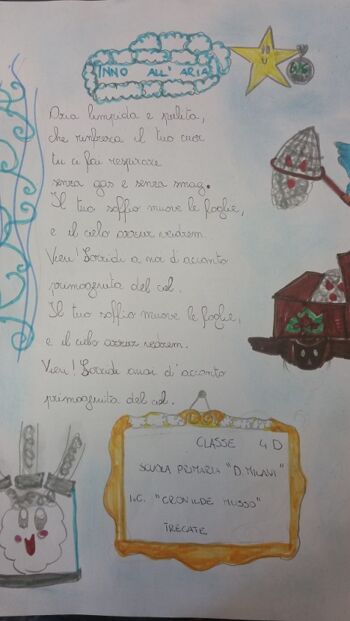 INNO ALL'ARIA
Aria limpida e pulita,
che rinfresca il tuo cuor
tu ci fai respirare
senza gas e senza smog.
Il tuo soffio muove le foglie,
e il cielo azzur vedrem.
Vieni! Sorridi a noi d'accanto
primogenita del ciel.
Il tuo soffio muove le foglie,
e il cielo azzur vedrem.
Vieni! Sorridi d'accanto
primogenita del ciel.
CLASSE 4 D
SCUOLA PRIMARIA "D. MILANI"
I.C. "CRONILDE MUSSO"
TRECATE